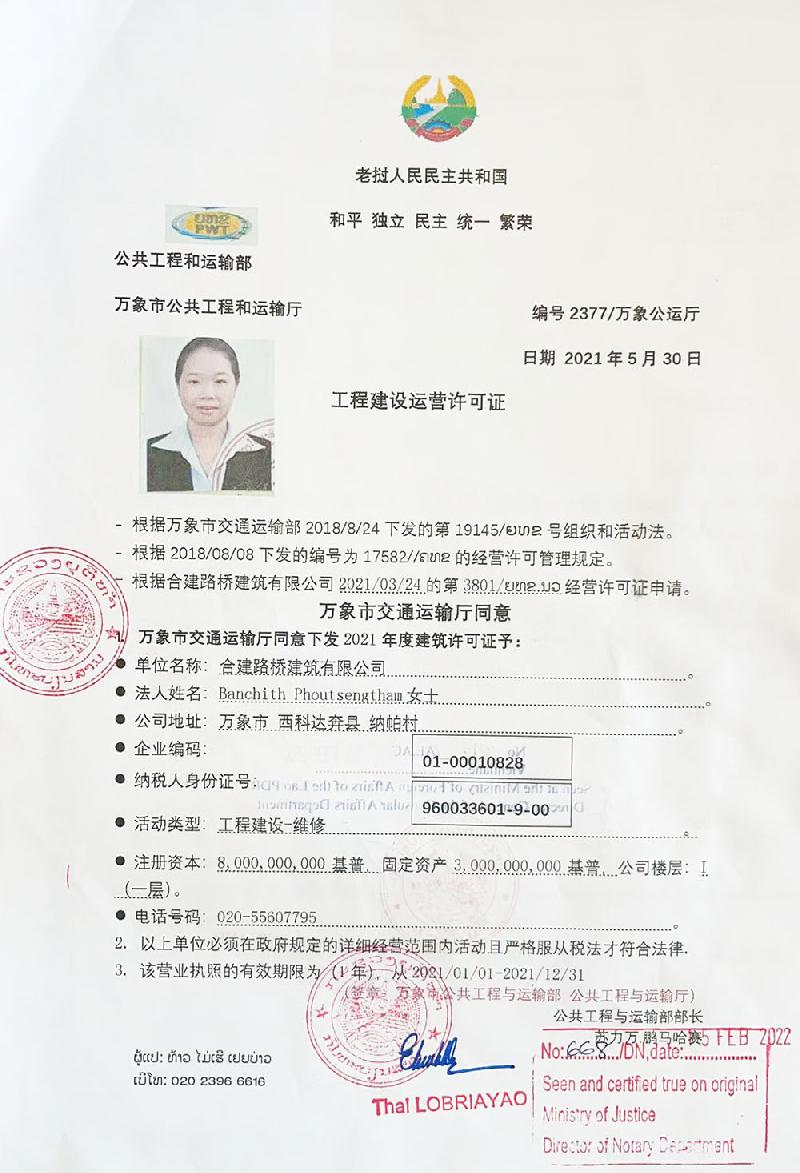 老挝人民民主共和国
和平 独立 民主 统一 繁荣
ຍທຂ
PWT
公共工程和运输部
万象市公共工程和运输厅
编号 2377/万象公运厅
日期 2021 年 5 月 30 日
工程建设运营许可证
- 根据万象市交通运输部 2018/8/24 下发的第 19145/ຍທຂ 号组织和活动法。
- 根据 2018/08/08 下发的编号为 17582//ຍທຂ 的经营许可管理规定。
- 根据合建路桥建筑有限公司 2021/03/24 的第 3801/ຍທຂ.ນວ 经营许可证申请。
万象市交通运输厅同意
1. 万象市交通运输厅同意下发 2021 年度建筑许可证予：
● 单位名称： 合建路桥建筑有限公司。
● 法人姓名： Banchith Phoutsengtham 女士。
● 公司地址： 万象市 西科达弃县 纳帕村。
● 企业编码： 01-00010828
● 纳税人身份证号： 960033601-9-00
● 活动类型： 工程建设-维修。
● 注册资本： 8,000,000,000 基普 固定资产 3,000,000,000 基普 公司楼层： I
（一层）。
● 电话号码： 020-55607795。
2. 以上单位必须在政府规定的详细经营范围内活动且严格服从税法才符合法律.
3. 该营业执照的有效期限为（1 年），从 2021/01/01-2021/12/31
（签章： 万象市公共工程与运输部 公共工程与运输厅）
公共工程与运输部部长
苏力万.鹏马哈赛
ຜູ້ແປ: ທ້າວ ໄມ່ເຮີ ເຍຍບ່າວ
ເບີໂທ: 020 2396 6616
Thai LOBRIAYAO
5 FEB 2022
No: 668 /DN,date:
Seen and certified true on original
Ministry of Justice
Director of Notary Department